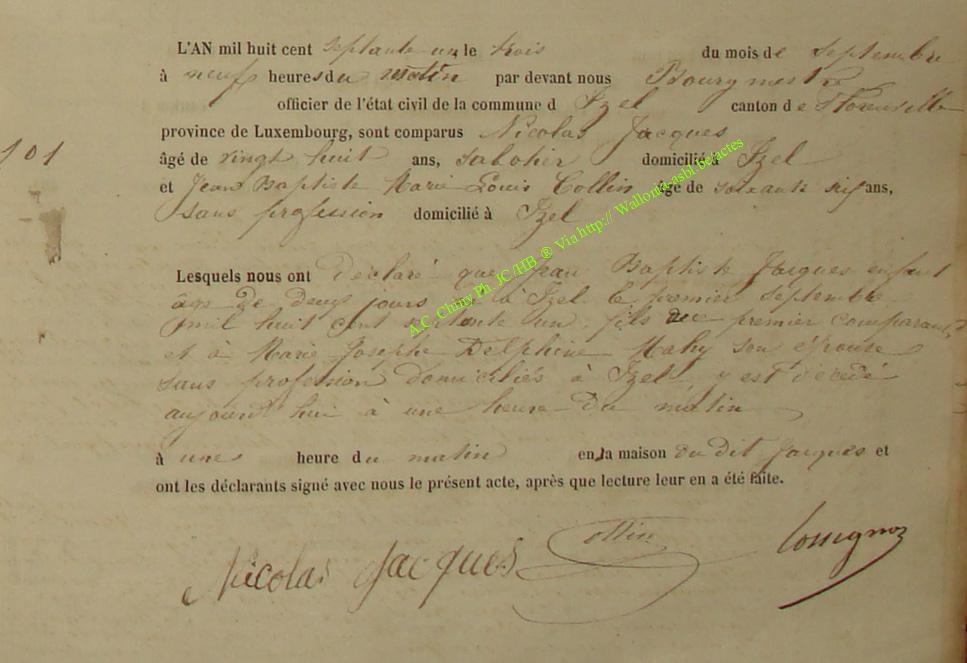 L'AN mil huit cent septante un le trois du mois de Septembre
à neuf heures du matin par devant nous Bourgmestre
officier de l'état civil de la commune d Izel canton de Florenville
province de Luxembourg, sont comparus Nicolas Jacques
101
âgé de vingt huit ans, sabotier domicilié à Izel
et Jean Baptiste Marie Louis Collin âgé de soixante six ans,
sans profession domicilié à Izel
Lesquels nous ont déclaré que Jean Baptiste Jacques enfant
âgé de deux jours né à Izel le premier Septembre
mil huit cent septante un, fils du premier comparant,
et à Marie Josephe Delphine Mahy son épouse
sans profession domiciliés à Izel, y est décédé
aujourd'hui à une heure du matin
à une heure du matin en la maison du dit Jacques et
ont les déclarants signé avec nous le présent acte, après que lecture leur en a été faite.
Nicolas Jacques Collin
A.C. Chiny Ph. JC/HB ® Via http:// Wallonia-asbl-be/actes